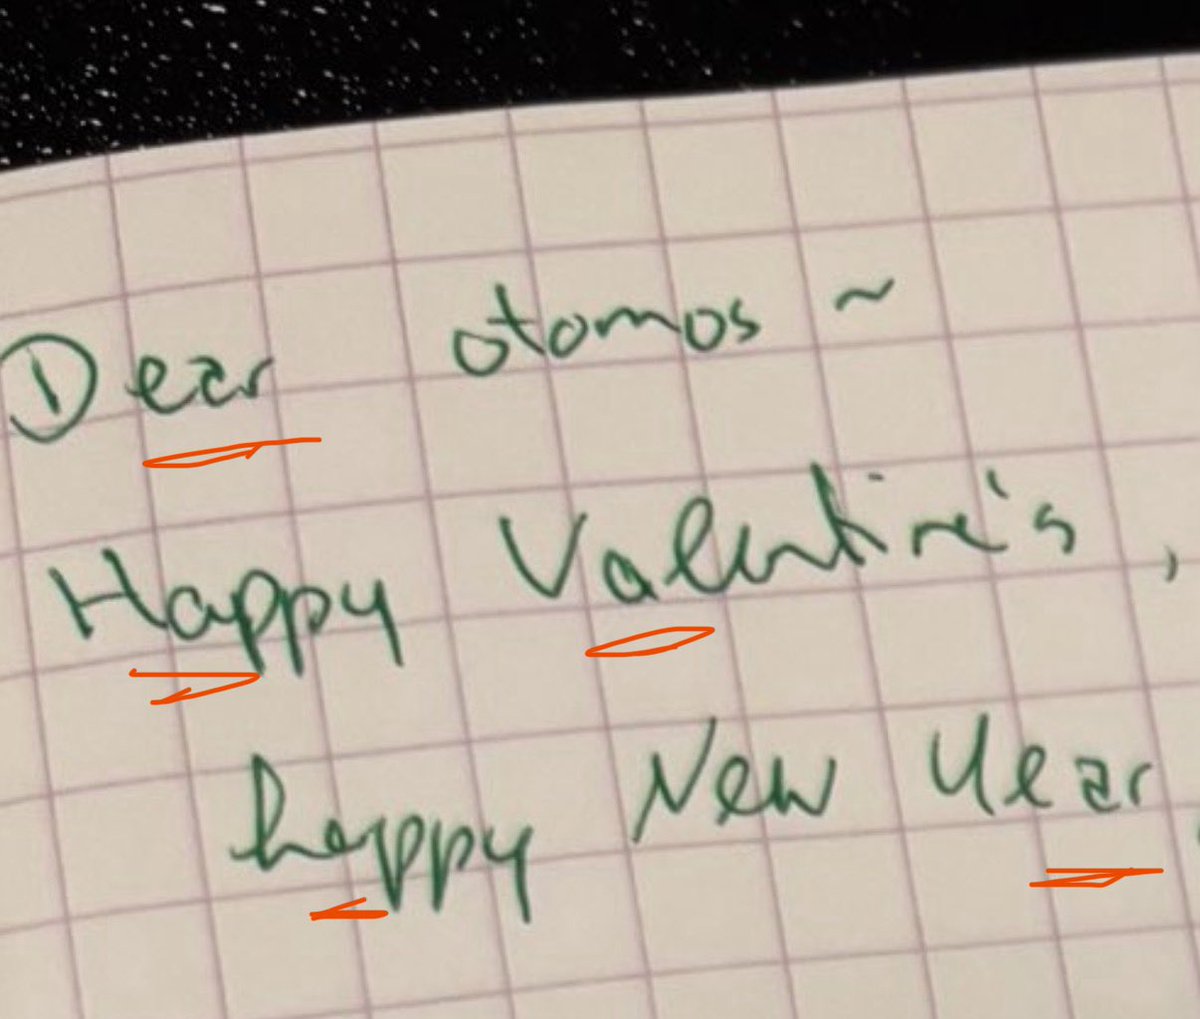 Dear otomos ~
Happy Valentine's,
happy New Year